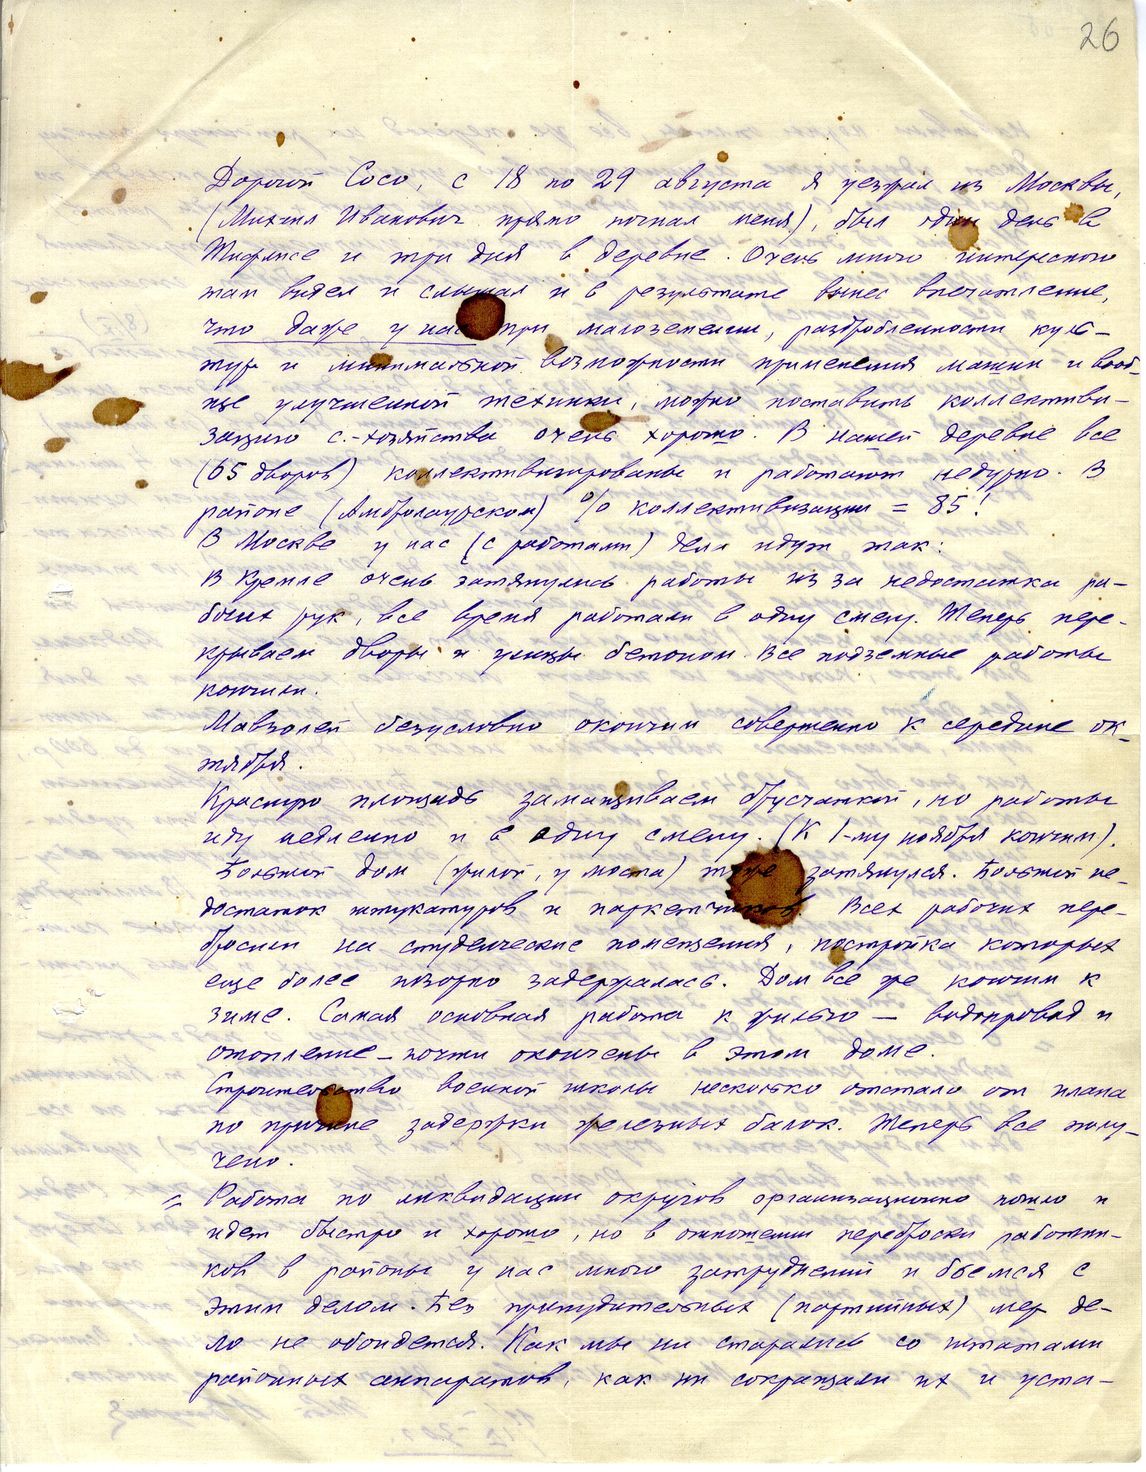 26
Дорогой Сосо, с 18 по 29 августа я уезжал из Москвы,
(Михаил Иванович прямо погнал меня), был один день в
Тифлисе и три дня в деревне. Очень много интересного
там видел и слышал и в результате вынес впечатление,
что даже у нас при малоземелии, раздробленности куль-
тур и минимальной возможности применения машин и вооб-
ще улучшенной техники, можно поставить коллективи-
зацию с.-хозяйства очень хорошо. В нашей деревне все
(65 дворов) коллективизированы и работают недурно. В
районе (Амбролаурском) % коллективизации = 85!
В Москве у нас (с работами) дела идут так:
В Кремле очень затянулись работы из за недостатка ра-
бочих рук, все время работали в одну смену. Теперь пере-
крываем дворы и улицы бетоном. Все подземные работы
кончили.
Мавзолей безусловно окончим совершенно к середине ок-
тября.
Красную площадь замащиваем брусчаткой, но работы
иду медленно и в одну смену. (К 1-му ноября кончим).
Большой дом (жилой, у моста) тоже затянулся. Большой не-
достаток штукатуров и паркетчиков. Всех рабочих пере-
бросили на студенческие помещения, постройка которых
еще более позорно задержалась. Дом все же кончим к
зиме. Самая основная работа к жилью — водопровод и
отопление – почти окончены в этом доме.
Строительство военной школы несколько отстало от плана
по причине задержки железных балок. Теперь все полу-
чено.
= Работа по ликвидации округов организационно пошло и
идет быстро и хорошо, но в отношении переброски работни-
ков в районы у нас много затруднений и бьемся с
этим делом. Без принудительных (партийных) мер де-
ло не обойдется. Как мы ни старались со штатами
районных аппаратов, как ни сокращали их и уста-